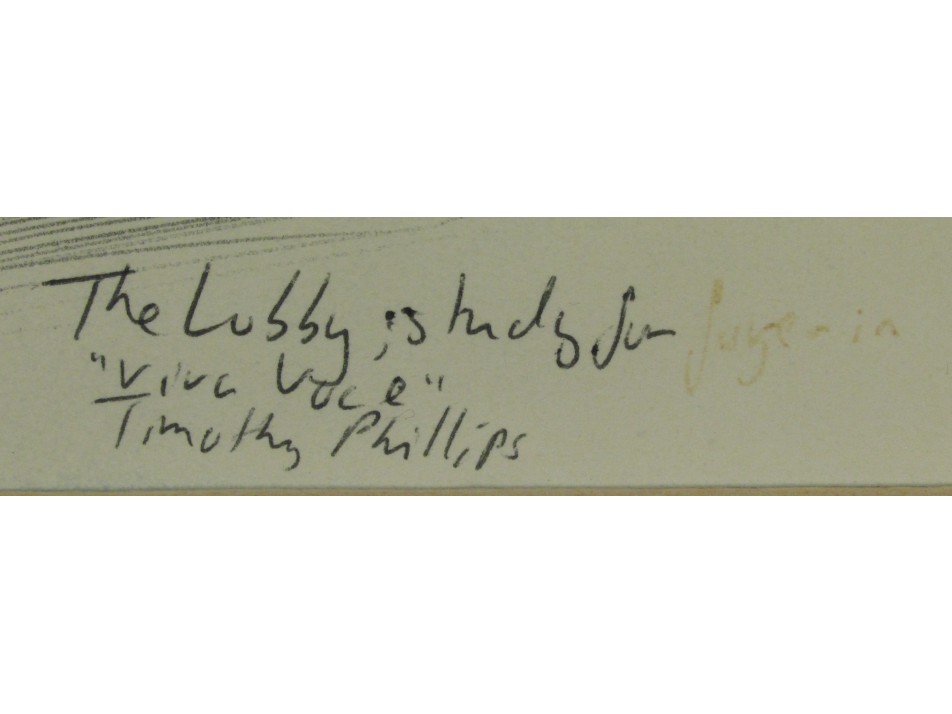 The Lobby; study for
"Viva Voce"
Timothy Phillips